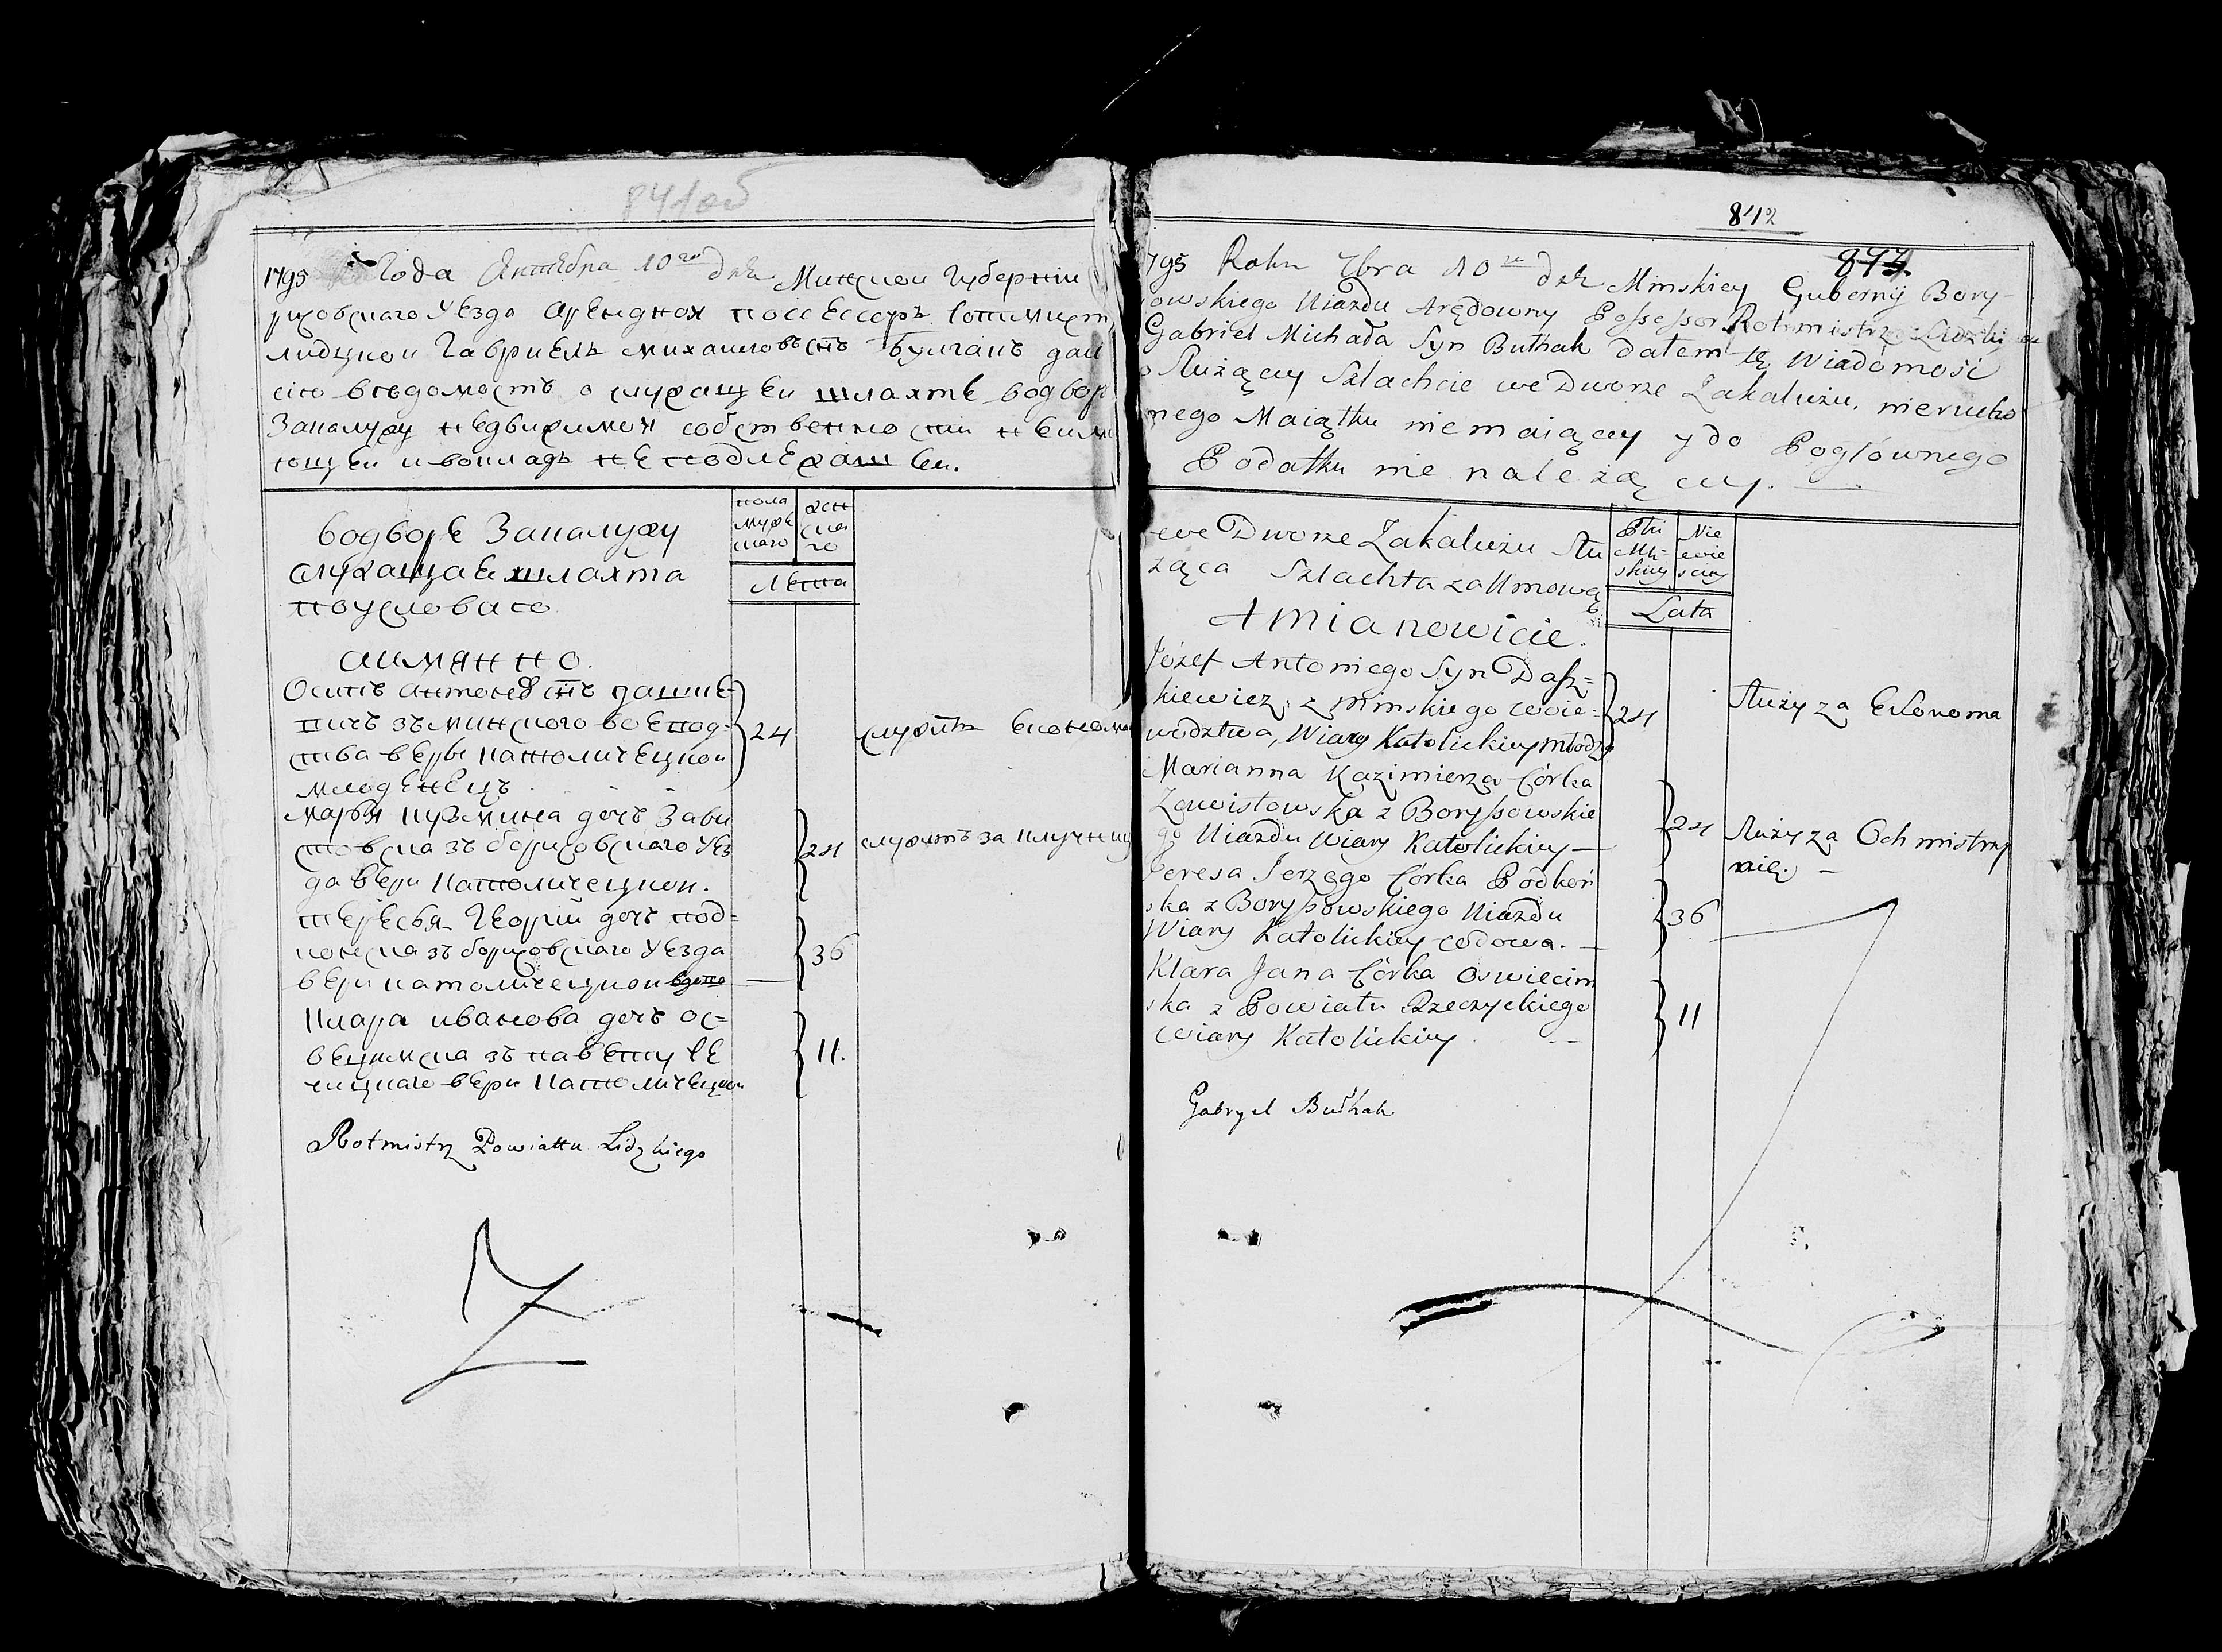 841об
1795 Года Октебра 10го дня Минской Губерніи
рисовского Уезда Арендной поссессоръ
лидзкой Гавриель михаиловъ снъ Булгакъ дал
сію ведомость о служащеи шляхте водвор
Закалужу недвижимой собственности неим
ющеи ивоклад неподлежащеи.
водворе Закалужу
служащае шляхта
поусловию
аимянно.
пола
муже
ского
жен
ско
го
Лета
Осипъ антоновъ снъ дашке-
вичъ зъминского воевод-
ства веры католичецкои
младенецъ
24
служитъ економо
марья кузмина дочъ Зави
стовска зъ борисовского Уез
да вери католичецкои.
24
служитъ за ключниц
тересья Георгіи дочъ под-
конска зъ борисовского Уезда
вери католичецкои вдова
36
Клара иванова дочъ ос-
вецимска зъ павету ре
чицкаго вери католичецкои
11.
Rotmistrz Powiattu Lidzkiego
842
843.
795 Roku 8bra 10go dnia Minskiey Gubernij Bory-
owskiego Uiazdu Arędowny Possessor Rotmistrz Lidzki
Gabriel Michała Syn Bułhak dałem tę Wiadomość
o Służącey Szlachcie we Dworze Zakalużu, nierucho
mego Maiątku niemaiącey y do Pogłównego
Podatku nie należącey.
we Dworze Zakalużu Słu
żąca Szlachta za Umową
A mianowicie.
Płci
Mę-
skiey
Nie
wie
sciey
Lata
Józef Antoniego Syn Dasz-
kiewicz, z Minskiego Woie-
wodztwa, Wiary Katolickiey młodz
24
Służy za Ekonoma
Marianna Kazimierza Córka
Zawistowska z Borysowskie
go Uiazdu Wiary Katolickiey
24
Służy za Ochmistrzy
nię.
Teresa Jerzego Córka Podkoń
ska z Borysowskiego Uiazdu
Wiary Katolickiey wdowa.
36
Klara Jana Córka Oswiecim
ska z Powiatu Rzeczyckiego
Wiary Katolickiey
11
Gabryel Bułhak